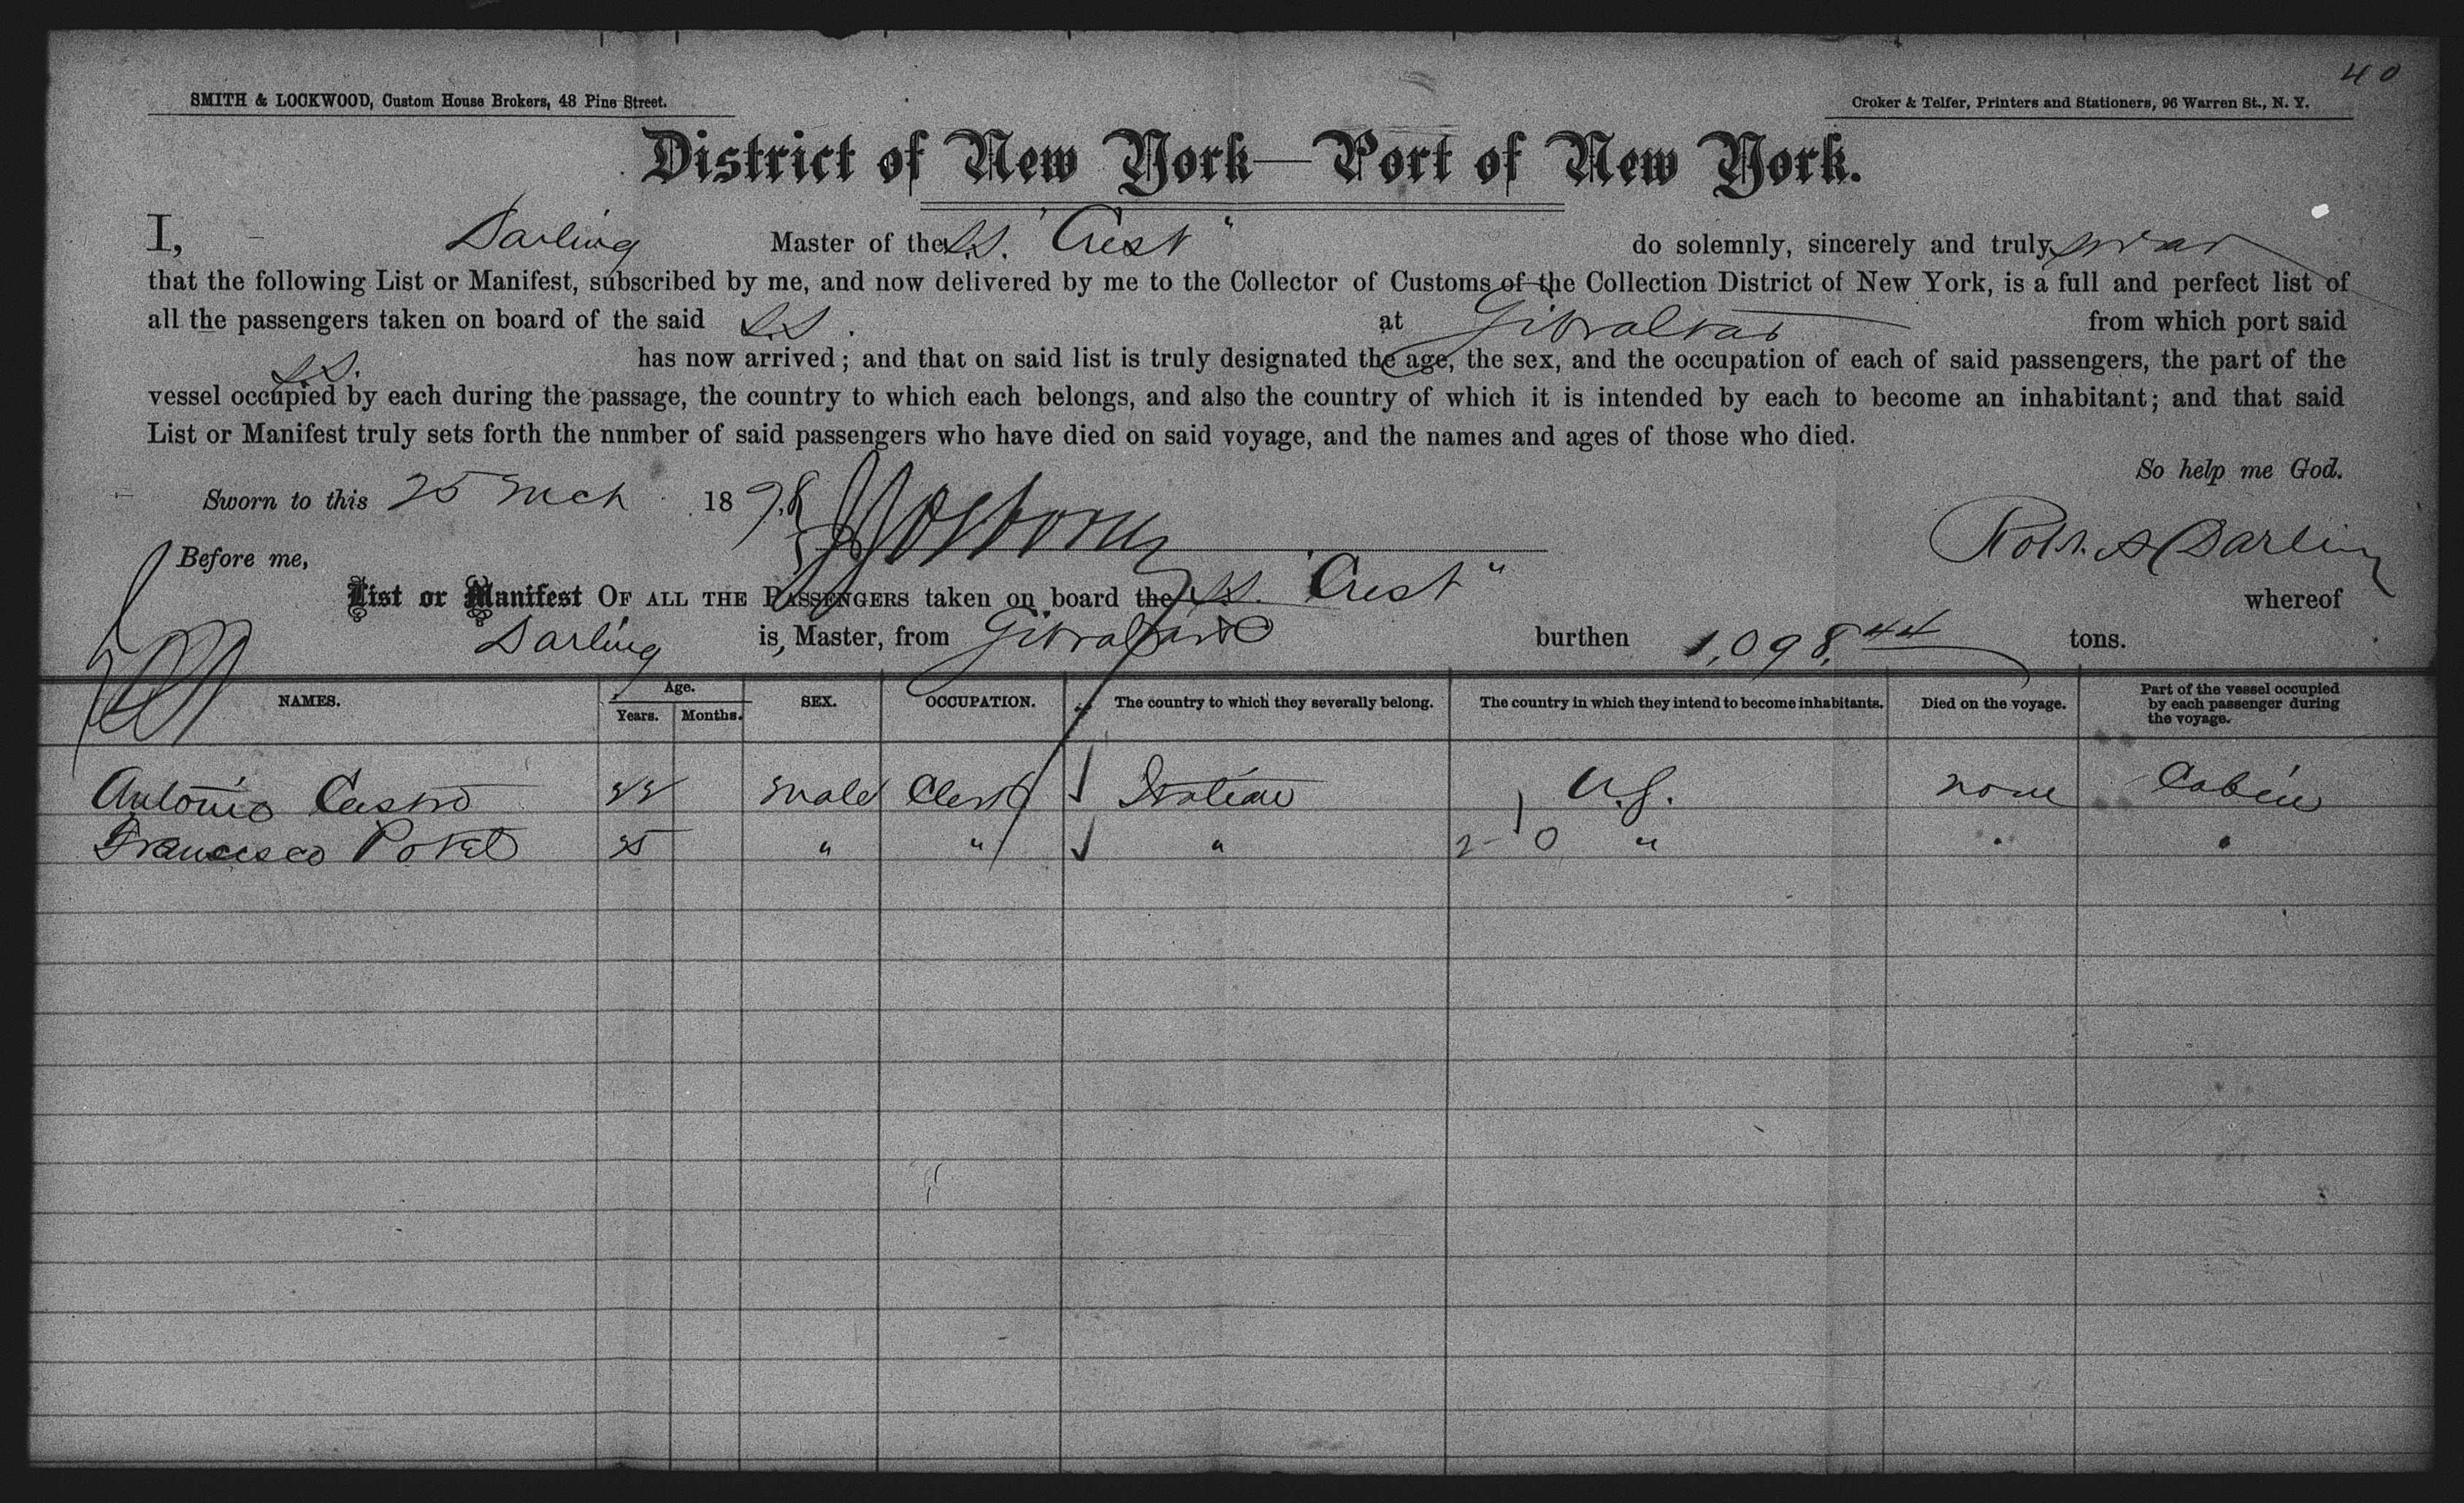 40
SMITH & LOCKWOOD, Custom House Brokers, 48 Pine Street.
Croker & Telfer, Printers and Stationers, 96 Warren St., N. Y.
District of New York—Port of New York.
I, Darling Master of the S.S. "Crest" do solemnly, sincerely and truly swear
that the following List or Manifest, subscribed by me, and now delivered by me to the Collector of Customs of the Collection District of New York, is a full and perfect list of
all the passengers taken on board of the said S.S. at Gibraltar from which port said
S.S. has now arrived; and that on said list is truly designated the age, the sex, and the occupation of each of said passengers, the part of the
vessel occupied by each during the passage, the country to which each belongs, and also the country of which it is intended by each to become an inhabitant; and that said
List or Manifest truly sets forth the nnmber of said passengers who have died on said voyage, and the names and ages of those who died.
So help me God.
Sworn to this 25 Mch 1898
Before me,
Robt. A Darling
List or Manifest OF ALL THE PASSENGERS taken on board the S.S. "Crest" whereof
Darling is, Master, from Gibraltar burthen 1,098.44 tons.
NAMES. Age. Years. Months. SEX. OCCUPATION. The country to which they severally belong. The country in which they intend to become inhabitants. Died on the voyage. Part of the vessel occupied by each passenger during the voyage.
Antonio Castro Male Clerk Italian U.S. none Cabin
Francisco 25 " " " 2-0 " " "